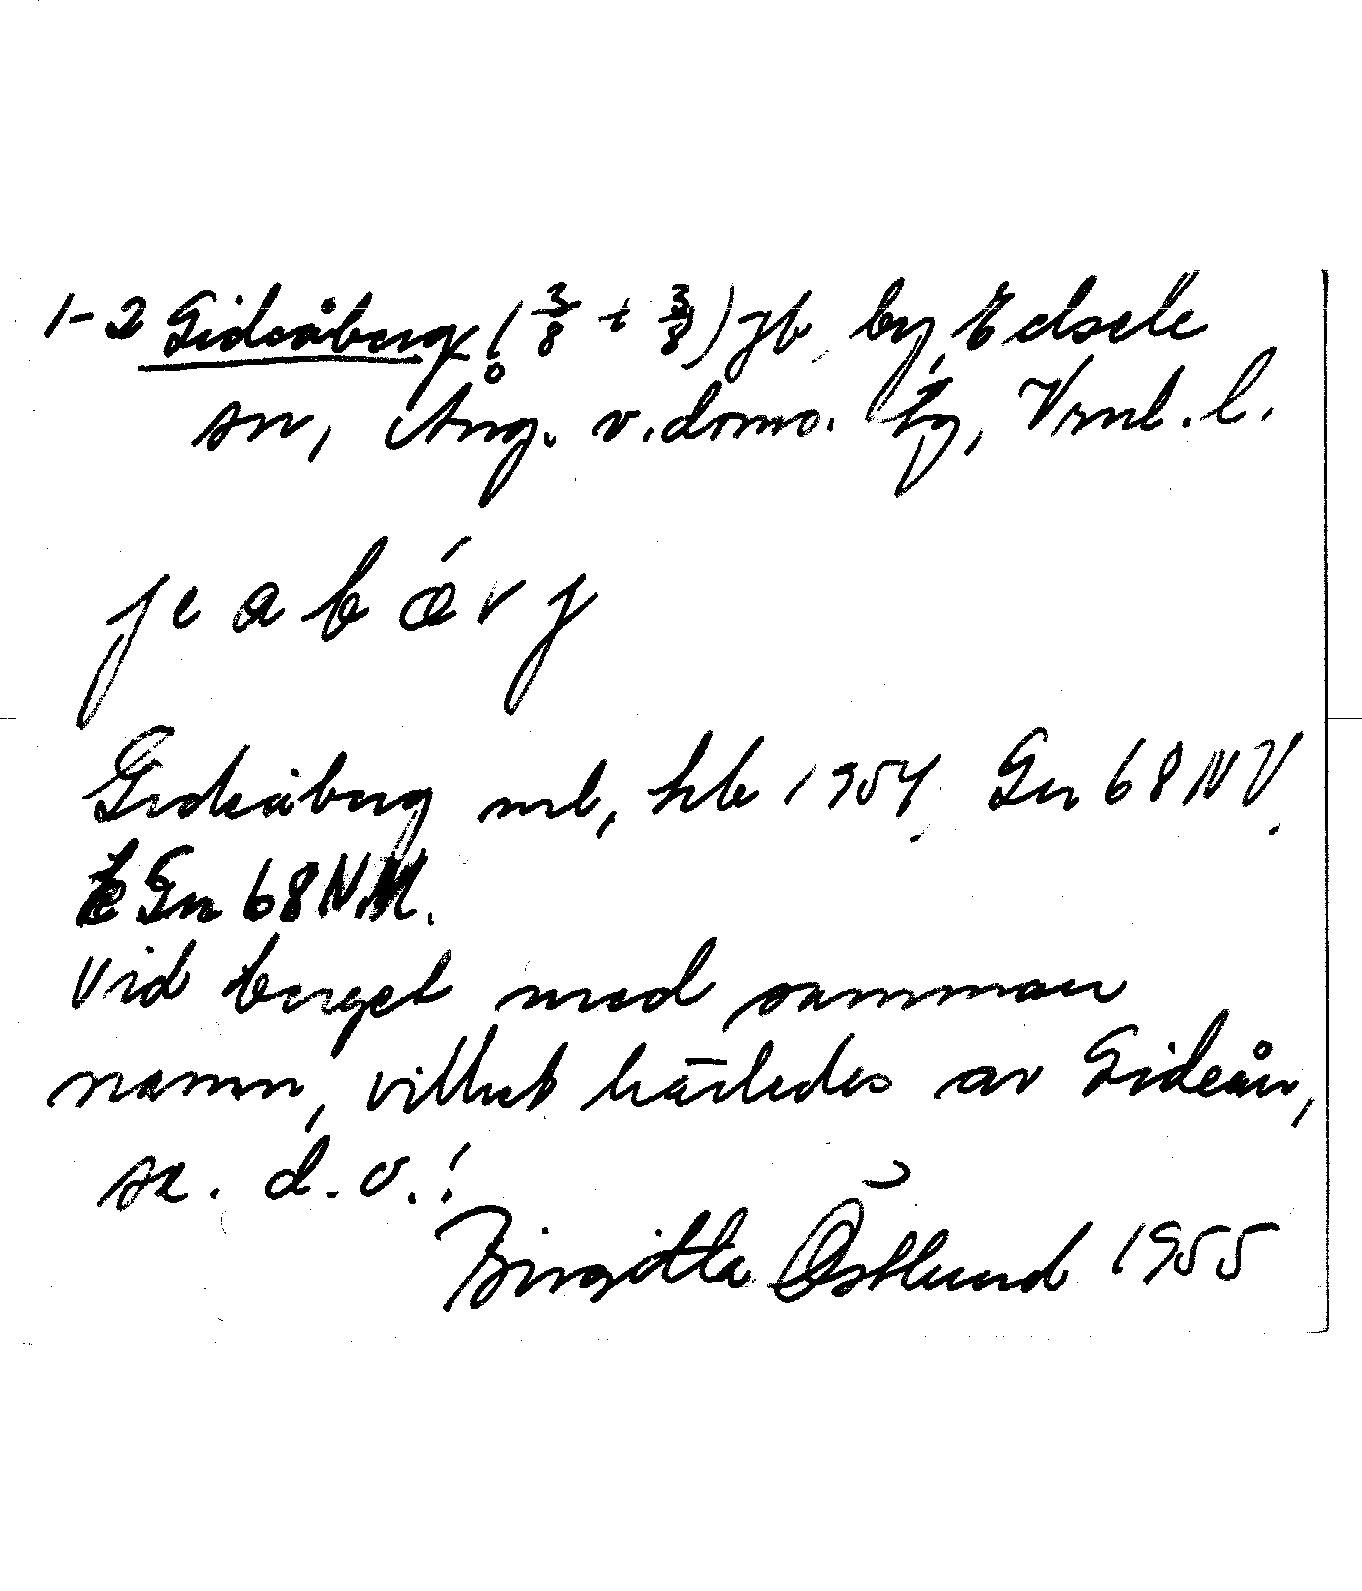 1-2 Gideåberg (3/8 + 3/8) jb, by, Edsele
sn, Ång. v. doms. lg, Vrnl. l.
jeabǽrj
Gideåberg mtl, hb 1954, Gn 68 NV.
Gn 68 N
Vid berget med samma
namn, vilket härledes av Gideån,
se. d. o.!
Birgitta Östlund 1955